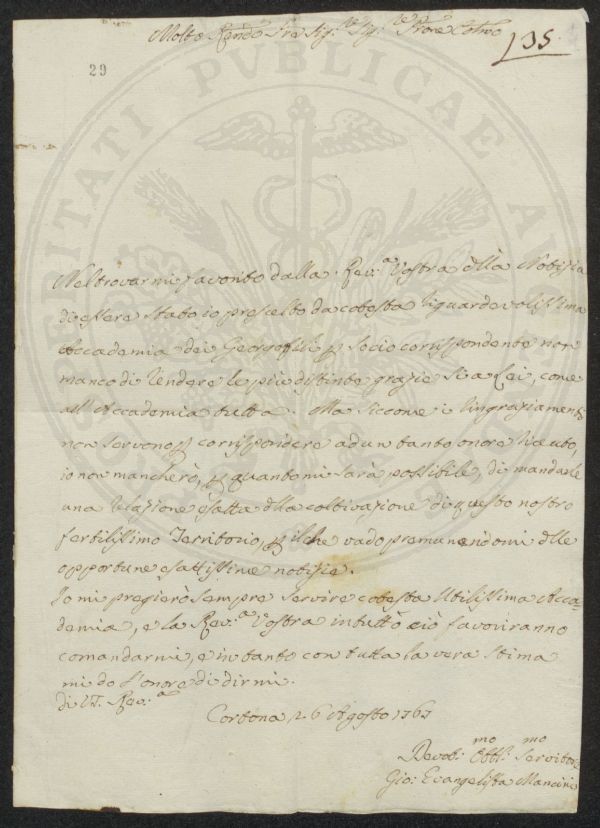 Molto Rendo Pre Sig.re Sig.re Prone Colmo
135
29
PROSPERITATI PVBLICAE AVGENDAE
Nel trovarmi favorito dalla Rev.a Vostra della Notizia
di essere stato io prescelto da cotesta riguardevolissima
Accademia dei Georgofili p socio corrispondente non
manco di rendere le più distinte grazie si a Lei, come
all'Accademia tutta. Ma siccome i ringraziamenti
non servono p corrispondere ad un tanto onore riceuto,
io non mancherò, p quanto mi sarà possibile, di mandarle
una relazione esatta della coltivazione di questo nostro
fertilissimo Territorio, p il che vado premunendomi delle
opportune esattissime notizie.
Io mi pregierò sempre servire cotesta Utilissima Acca=
demia, e la Rev.a Vostra in tutto ciò favoriranno
comandarmi, e intanto con tutta la vera stima
mi do l'onore di dirmi.
di V.P. Rev.a
Cortona 26 Agosto 1767
Devot:mo Obbl:mo Servitore
Gio: Evangelista Mancini